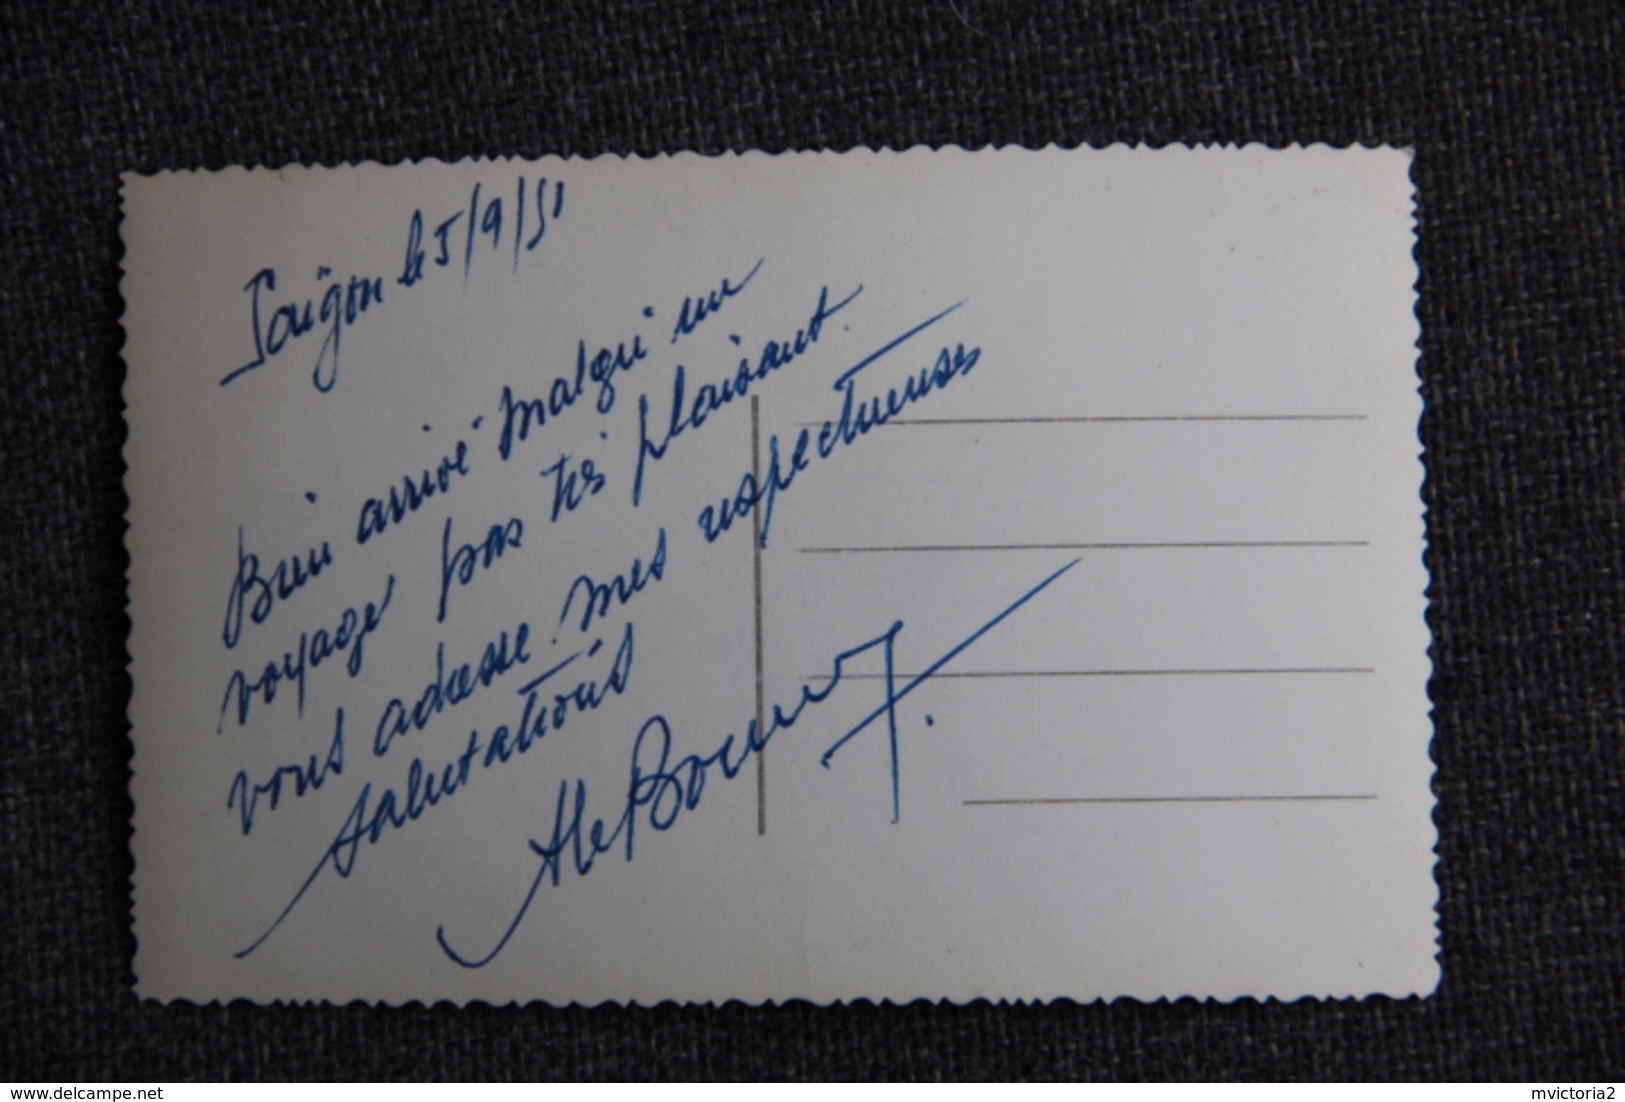 Saïgon le 5/9/51
Bien arrivé malgré un
voyage pas très plaisant.
vous adresse mes respectueuses
salutations
delcampe.net
mvictoria2